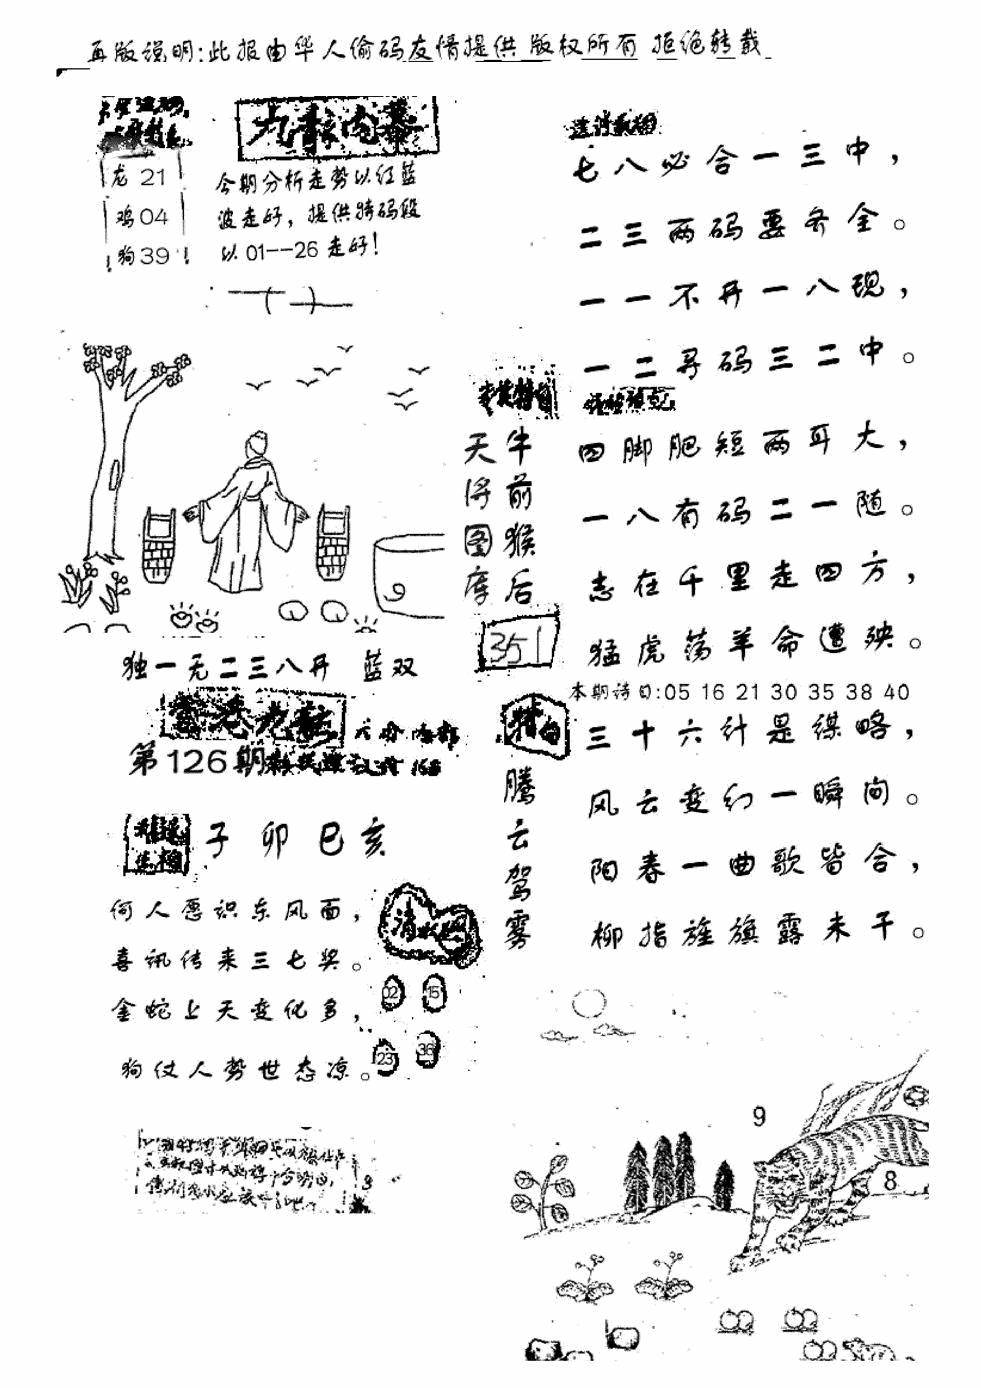 再版说明:此报由华人偷码友情提供 版权所有 拒绝转载
九龍内幕
龙 21
鸡 04
狗 39
今期分析走势以红蓝
波走好，提供特码段
以 01--26 走好！
七八必合一三中，
二三两码要齐全。
一一不开一八现，
一二寻码三二中。
四脚肥短两耳大，
一八有码二一随。
志在千里走四方，
猛虎荡羊命遭殃。
牛前猴后
天将图库
351
独一无二三八开 蓝双
本期诗曰:05 16 21 30 35 38 40
香港九龍
第126期
特白
腾云驾雾
三十六计是谋略，
风云变幻一瞬间。
阳春一曲歌皆合，
柳指旌旗露未干。
子 卯 巳 亥
何人愿识东风面，
喜讯传来三七奖。
金蛇上天变化多，
狗仗人势世态凉。
02 15
23 36
9
8